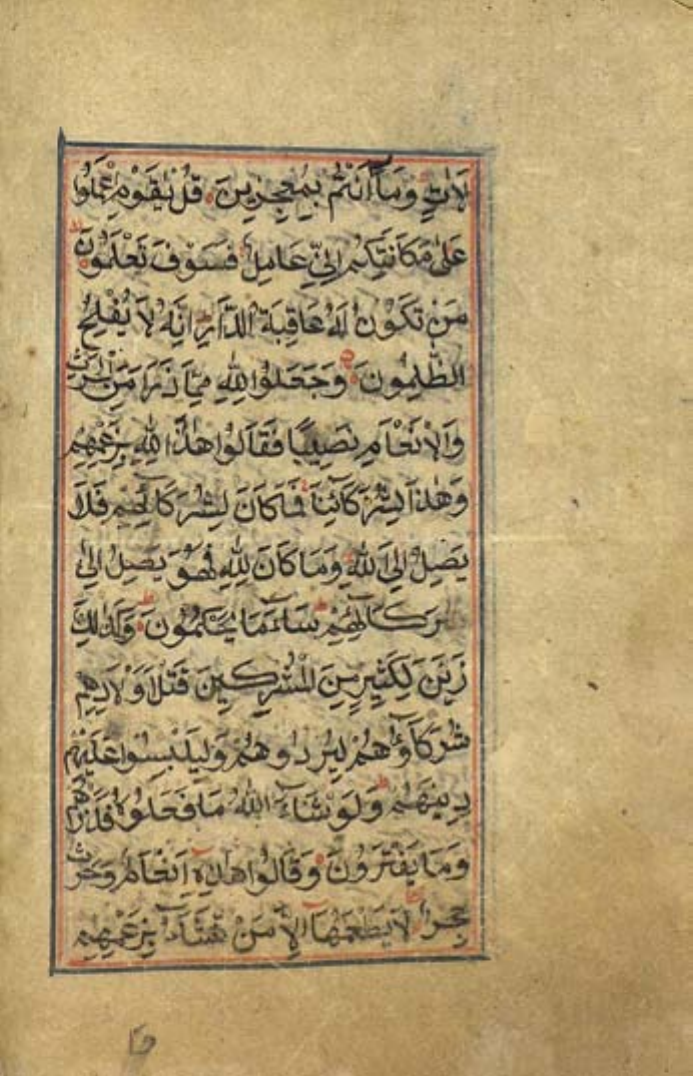 لَاٰتٍ وَمَآ اَنْتُمْ بِمُعْجِزِيْنَ قُلْ يٰقَوْمِ اعْمَلُوْا
عَلٰى مَكَانَتِكُمْ اِنِّيْ عَامِلٌ فَسَوْفَ تَعْلَمُوْنَ
مَنْ تَكُوْنُ لَهٗ عَاقِبَةُ الدَّارِ اِنَّهٗ لَا يُفْلِحُ
الظّٰلِمُوْنَ وَجَعَلُوْا لِلّٰهِ مِمَّا ذَرَاَ مِنَ الْحَرْثِ
وَالْاَنْعَامِ نَصِيْبًا فَقَالُوْا هٰذَا لِلّٰهِ بِزَعْمِهِمْ
وَهٰذَا لِشُرَكَآئِنَا فَمَا كَانَ لِشُرَكَآئِهِمْ فَلَا
يَصِلُ اِلَى اللّٰهِ وَمَا كَانَ لِلّٰهِ فَهُوَ يَصِلُ اِلٰى
شُرَكَآئِهِمْ سَآءَ مَا يَحْكُمُوْنَ وَكَذٰلِكَ
زَيَّنَ لِكَثِيْرٍ مِنَ الْمُشْرِكِيْنَ قَتْلَ اَوْلَادِهِمْ
شُرَكَآؤُهُمْ لِيُرْدُوْهُمْ وَلِيَلْبِسُوْا عَلَيْهِمْ
دِيْنَهُمْ وَلَوْ شَآءَ اللّٰهُ مَا فَعَلُوْهُ فَذَرْهُمْ
وَمَا يَفْتَرُوْنَ وَقَالُوْا هٰذِهٖٓ اَنْعَامٌ وَحَرْثٌ
حِجْرٌ لَا يَطْعَمُهَآ اِلَّا مَنْ نَشَآءُ بِزَعْمِهِمْ